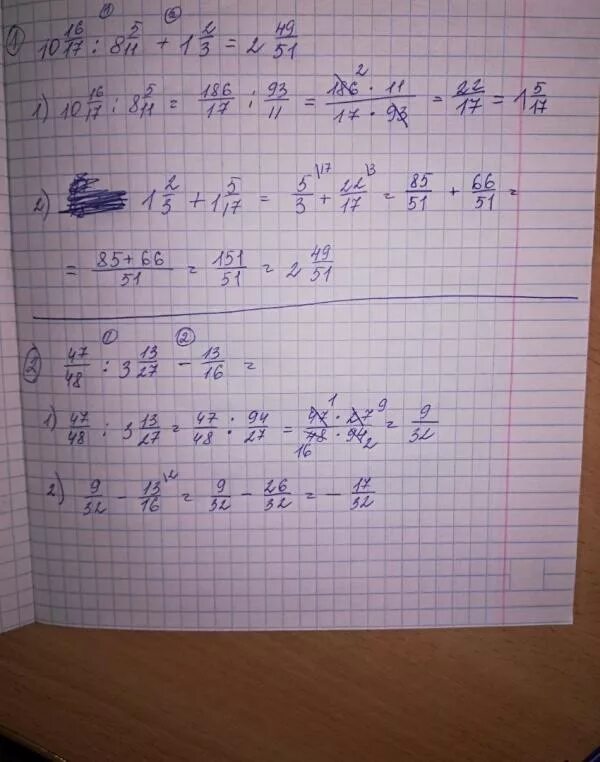 ① 10 16/17 : 8 5/11 + 1 2/3 = 2 49/51
1) 10 16/17 : 8 5/11 = 186/17 : 93/11 = 186 · 11 / 17 · 93 = 22/17 = 1 5/17
2) 1 2/3 + 1 5/17 = 5/3 + 22/17 = 85/51 + 66/51 =
= 85+66/51 = 151/51 = 2 49/51
② 47/48 : 3 13/27 - 13/16 =
1) 47/48 : 3 13/27 = 47/48 : 94/27 = 47 · 27 / 48 · 94 = 9/32
2) 9/32 - 13/16 = 9/32 - 26/32 = - 17/32